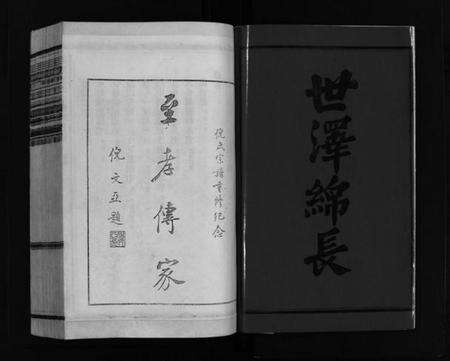 世澤綿長
倪氏宗譜重修紀念
至孝傳家
倪文亞題